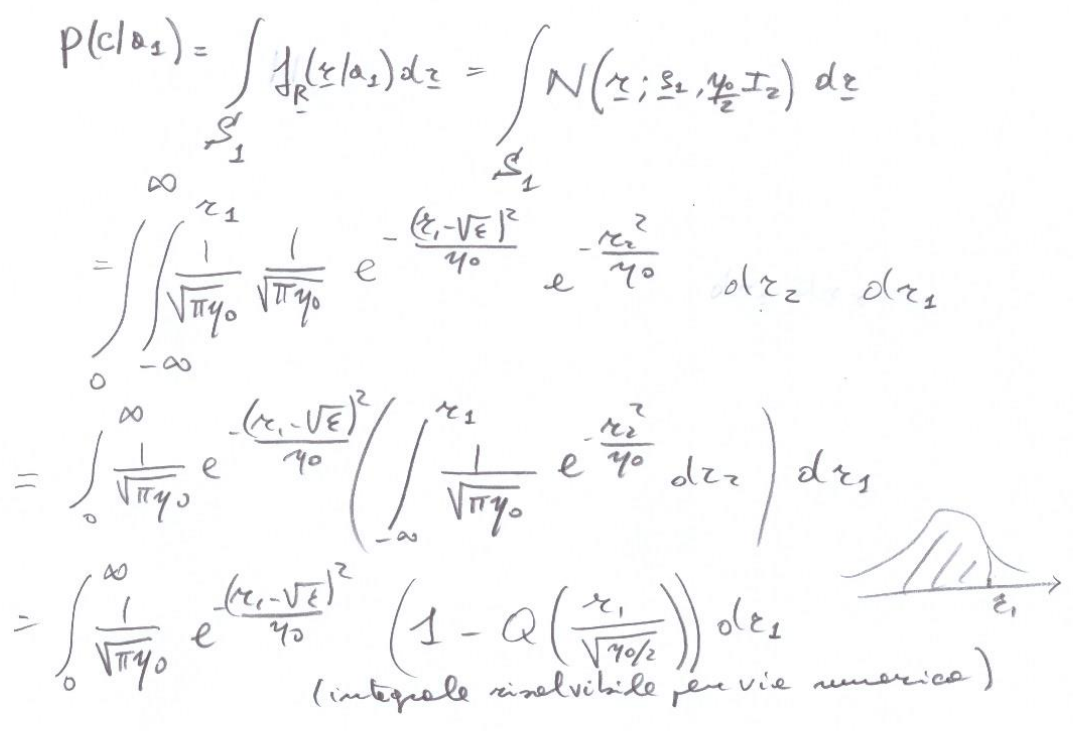 p(c/a₁) = ∫_{S₁} f_R(r/a₁) dr = ∫_{S₁} N(r; s₁, η₀/2 I₂) dr
= ∫_0^∞ ∫_{-∞}^{r₁} 1/√(πη₀) 1/√(πη₀) e^{-(r₁-√ε)²/η₀} e^{-r₂²/η₀} dr₂ dr₁
= ∫_0^∞ 1/√(πη₀) e^{-(r₁-√ε)²/η₀} ( ∫_{-∞}^{r₁} 1/√(πη₀) e^{-r₂²/η₀} dr₂ ) dr₁
= ∫_0^∞ 1/√(πη₀) e^{-(r₁-√ε)²/η₀} (1 - Q(r₁/√(η₀/2))) dr₁
r₁
(integrale risolvibile per via numerica)